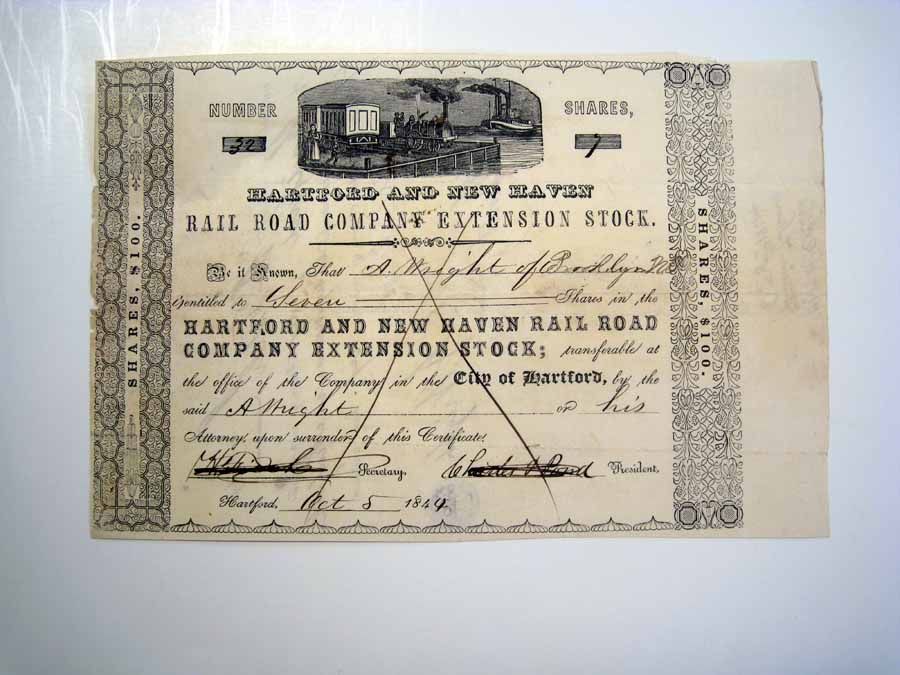 NUMBER
32
SHARES,
7
HARTFORD AND NEW HAVEN
RAIL ROAD COMPANY EXTENSION STOCK.
Be it Known, That A. Wright of Brooklyn
is entitled to Seven Shares in the
HARTFORD AND NEW HAVEN RAIL ROAD
COMPANY EXTENSION STOCK; transferable at
the office of the Company in the City of Hartford, by the
said A Wright or his
Attorney, upon surrender of this Certificate.
Secretary, President,
Hartford, Oct 5 1844
SHARES, $100.
SHARES, $100.